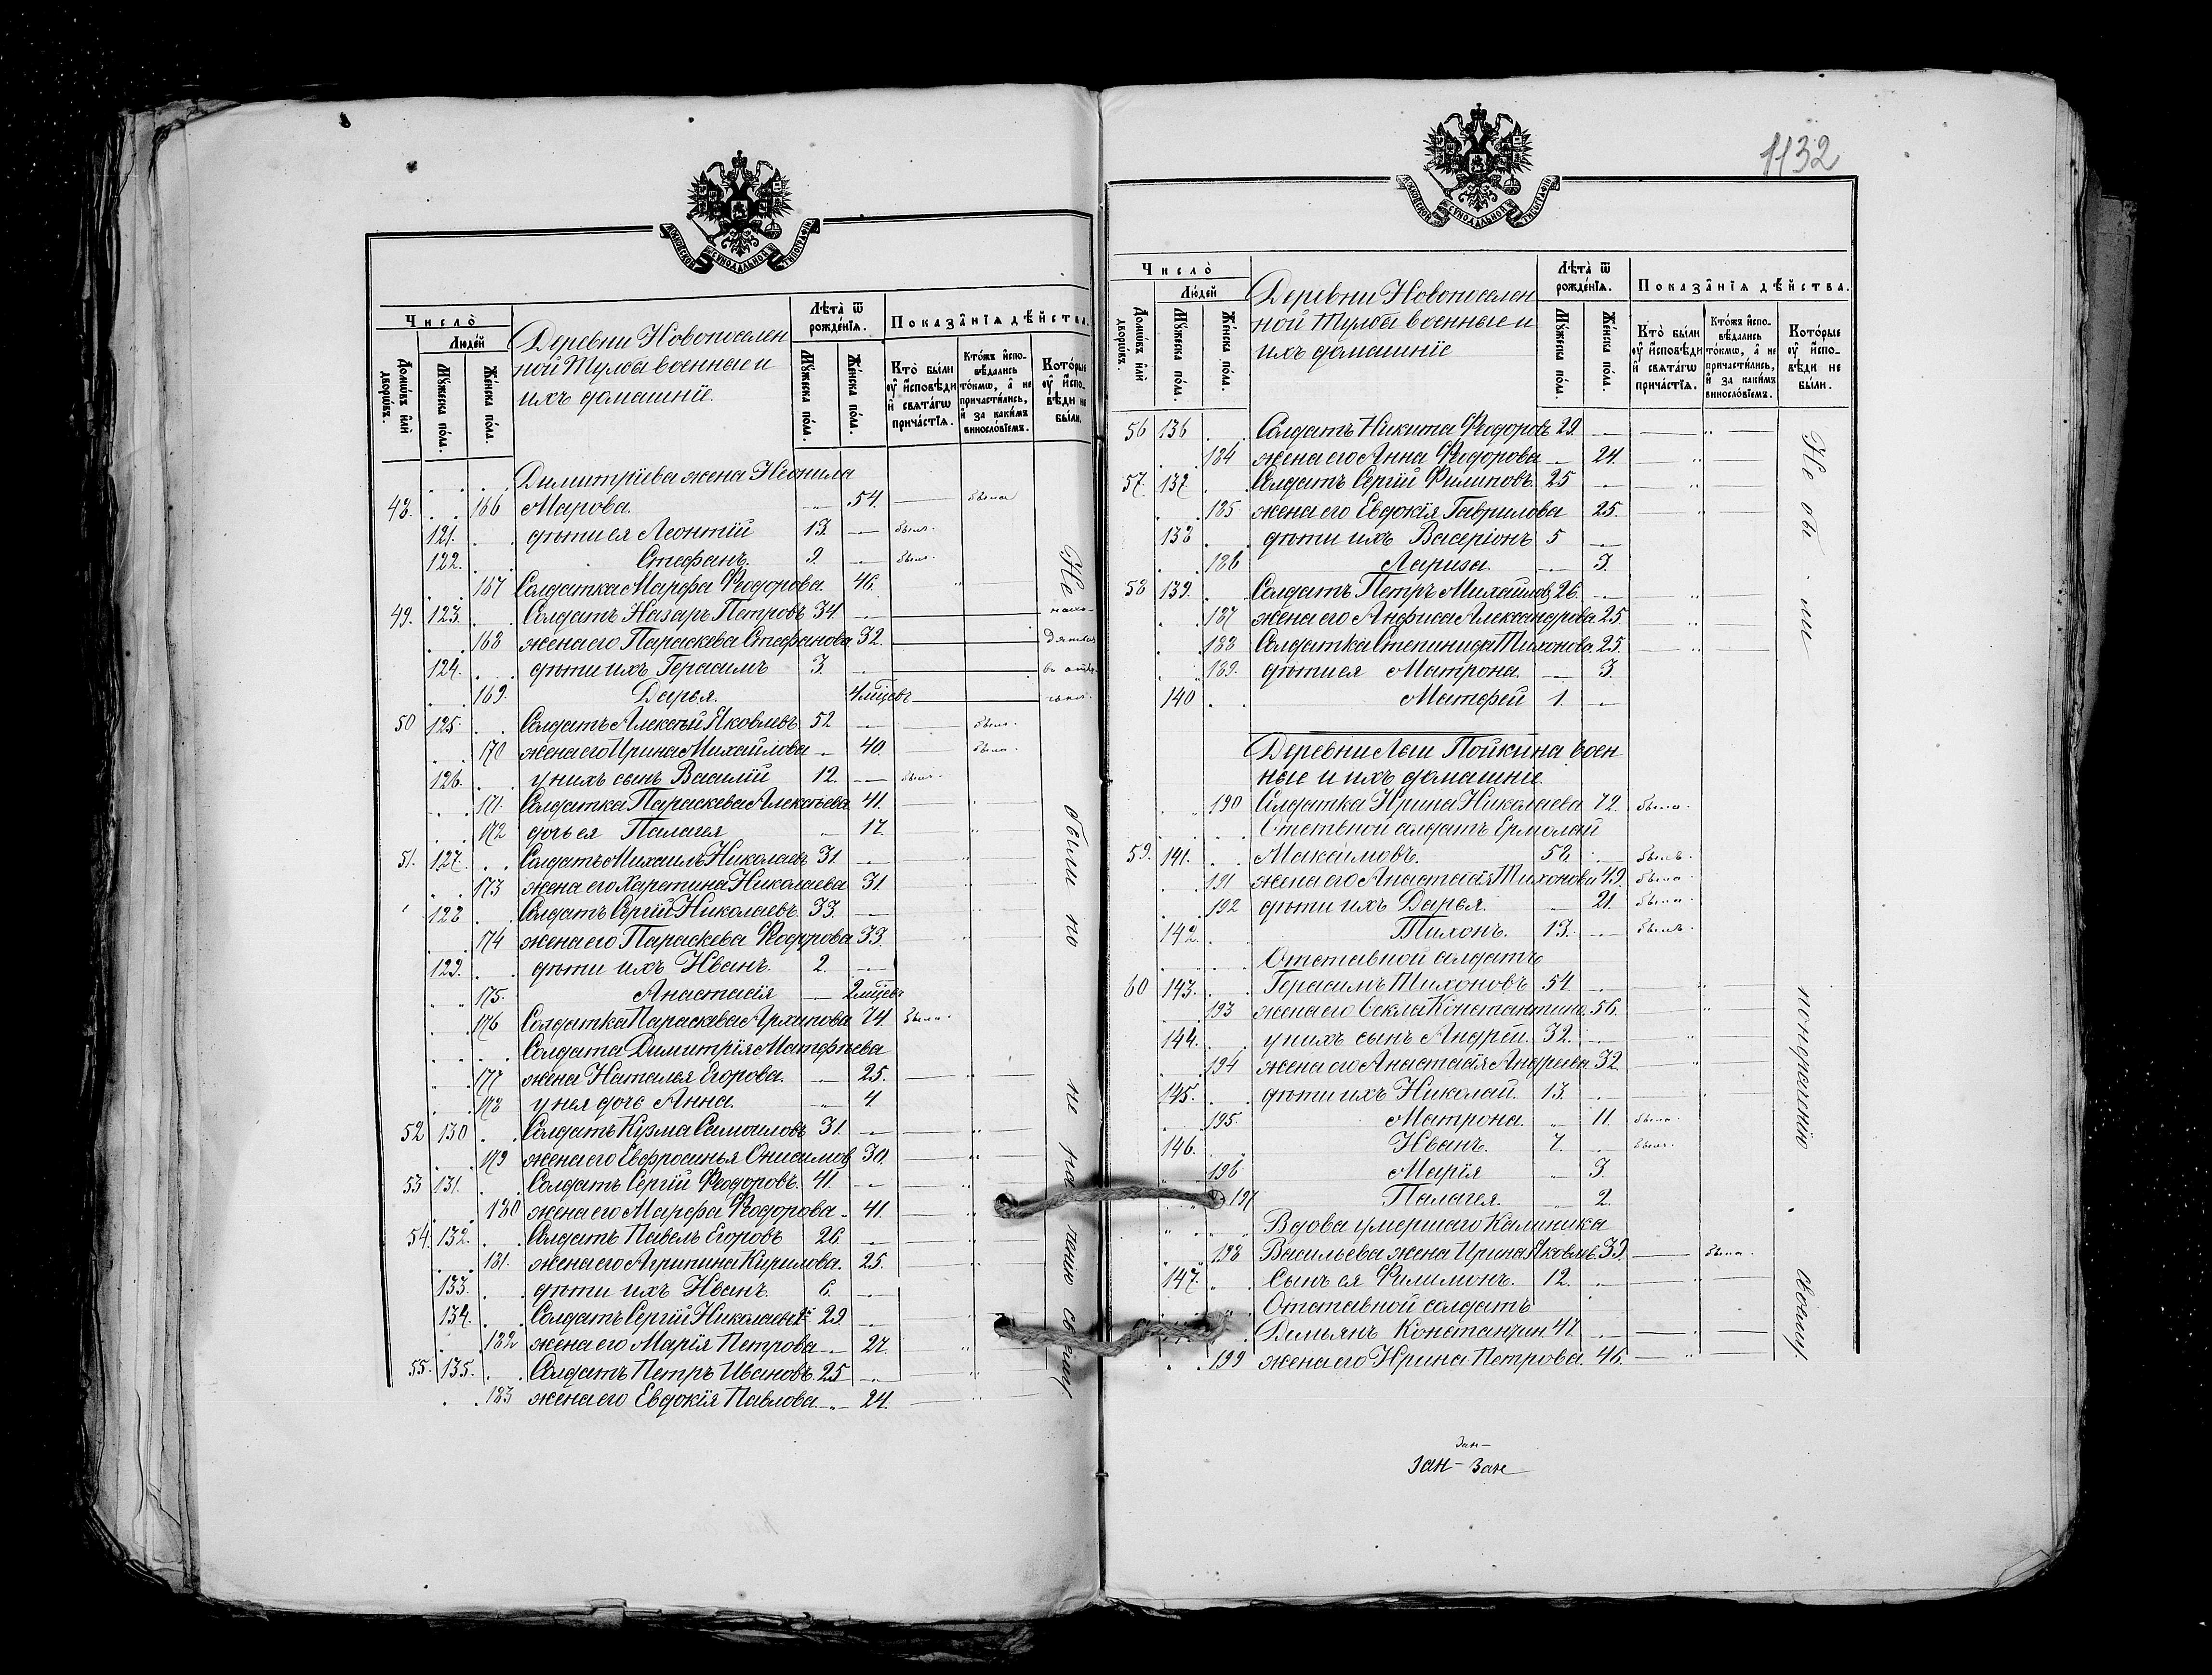 МОСКОВСКОЙ СѴНОДАЛЬНОЙ ТИПОГРАФІИ
Число̀
Людей
Домѡвъ и҆лѝ дворѡвъ.
Мꙋжеска по́ла.
Же́нска по́ла.
Деревни Новопоселен
ной Тулба военные и
ихъ домашніе.
Лѣта̀ ѿ рожде́нїѧ.
Мꙋжеска по́ла.
Же́нска по́ла.
Показа̑нїѧ дѣ́йства.
Кто̀ бы́ли ᲂу҆ и҆сповѣди и҆ свѧта́гѡ причастїѧ.
Кто́жъ и҆сповѣдались то́кмѡ, а҆ не причасти́лись, и҆ за каки́мъ винословїемъ.
Кото́рые ᲂу҆ и҆сповѣди не бы́ли.
Димитріева жена Неонила
48. 166 Марова. 54. была
121. дѣти ея Леонтій 13. былъ.
122. Стефанъ. 9. былъ.
167 Солдатка Марфа Ѳеодорова. 46. "
49. 123. Солдатъ Назаръ Петровъ 34. нахо-
168 жена его Параскева Стефанова. 32. дятся
124. дѣти ихъ Герасимъ 3. въ отлу-
169. Дарья. 4 мѣсѣцевъ
50 125. Солдатъ Алексѣй Яковлевъ 52 былъ.
170 жена его Ирина Михайлова 40. была.
126. у нихъ сынъ Василій 12. былъ.
171. Солдатка Параскева Алексѣева 41. "
172 дочь ея Палагея 17. "
51. 127. Солдатъ Михаилъ Николаевъ 31. "
173 жена его Харитина Николаева 31. "
128 Солдатъ Сергій Николаевъ. 33. "
174 жена его Параскева Ѳеодорова 33. "
129. дѣти ихъ Иванъ. 2.
175. Анастасія 2 мѣсѣцевъ
176 Солдатка Параскева Архипова. 74. была.
Солдата Димитрія Матѳѣева
177 жена Наталья Егорова. 25. "
178 у нея дочь Анна. 4.
52 130 Солдатъ Кузма Самоиловъ 31. "
179 жена его Евфросинья Онисимов 30. "
53 131. Солдатъ Сергій Ѳеодоровъ. 41. "
180 жена его Марфа Ѳеодорова 41. "
54. 132. Солдатъ Павелъ Егоровъ 26. "
181. жена его Агрипина Кирилова. 25. "
133. дѣти ихъ Иванъ. 6.
134. Солдатъ Сергій Николаевъ 2й 29. "
182 жена его Марія Петрова 27. "
55. 135. Солдатъ Петръ Ивановъ. 25 "
183 жена его Евдокія Павлова. 24. "
Не были по не ра нію своему
1132
МОСКОВСКОЙ СѴНОДАЛЬНОЙ ТИПОГРАФІИ
Число̀
Людей
Домѡвъ и҆лѝ дворѡвъ.
Мꙋжеска по́ла.
Же́нска по́ла.
Деревни Новопоселен
ной Тулба военные и
ихъ домашніе
Лѣта̀ ѿ рожде́нїѧ.
Мꙋжеска по́ла.
Же́нска по́ла.
Показа̑нїѧ дѣ́йства.
Кто̀ бы́ли ᲂу҆ и҆сповѣди и҆ свѧта́гѡ причастїѧ.
Кто́жъ и҆сповѣдались то́кмѡ, а҆ не причасти́лись, и҆ за каки́мъ винословїемъ.
Кото́рые ᲂу҆ и҆сповѣди не бы́ли.
56 136 Солдатъ Никита Ѳеодоровъ 29. "
184 жена его Анна Ѳеодорова 24. "
57. 137. Солдатъ Сергій Филиповъ. 25 "
185 жена его Евдокія Гаврилова 25. "
138 дѣти ихъ Васеріонъ 5
186 Лариса. 3.
58 139. Солдатъ Петръ Михайлов, 26. "
187 жена его Анфиса Александрова 25. "
188 Солдатка Степинида Тихонова 25. "
189. дѣти ея Матрона. 3
140 Матфей 1.
Деревни Лыи Пойкина воен
ные и ихъ домашніе
190 Солдатка Ирина Николаева 72. была.
Отставной солдатъ Ермолай
59. 141. Максимовъ. 58 былъ.
191 жена его Анастасія Тихонова 49. была.
192 дѣти ихъ Дарья. 21. была.
142. Тихонъ. 13. былъ.
Отставной солдатъ
60 143. Герасимъ Тихоновъ 54. "
193 жена его Ѳекла Константино. 56. "
144. у нихъ сынъ Андрей. 32. "
194 жена его Анастасія Андреева 32. "
145. дѣти ихъ Николай. 13. "
195. Матрона. 11. была.
146. Иванъ. 7. былъ.
196 Марія 3.
197 Палагея. 2.
Вдова умершаго Калиника
198 Васильева жена Ирина Яковлев. 39. была.
147. Сынъ ея Филимонъ. 12. "
Отставной солдатъ
Демьянъ Константин. 47. "
199 жена его Ирина Петрова. 46. "
Не бы ли по нерадѣнію своему.
Зан-
Зан- Зане